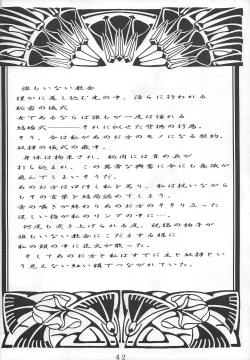 誰もいない教会
僅かに差し込む光の中、淫らに行われる
秘密の儀式
女であるならば誰もが一度は憧れる
結婚式―――それに似せた背徳の行為。
そう、今は私があのお方のモノになる契約、
奴隷の儀式の最中。
身体は拘束され、秘肉には責の具が
打ち込まれ、この異常な興奮に今にも意識が
飛んでしまいそうだ。
あのお方は口汚く私を罵り、私は拙いながら
もその言葉を結局認めてしまう。
愛の囁きが終わりあのお方のそそり立った
逞しい指が私のリングの中に…。
何度も突き上げられる度、祝福の拍手が
誰もいない教会にこだまする様に
私の頭の中に花火が散った。
そしてあのお方と私はすでに主と奴隷とい
う見えない紅い鎖でつながれていた。
42